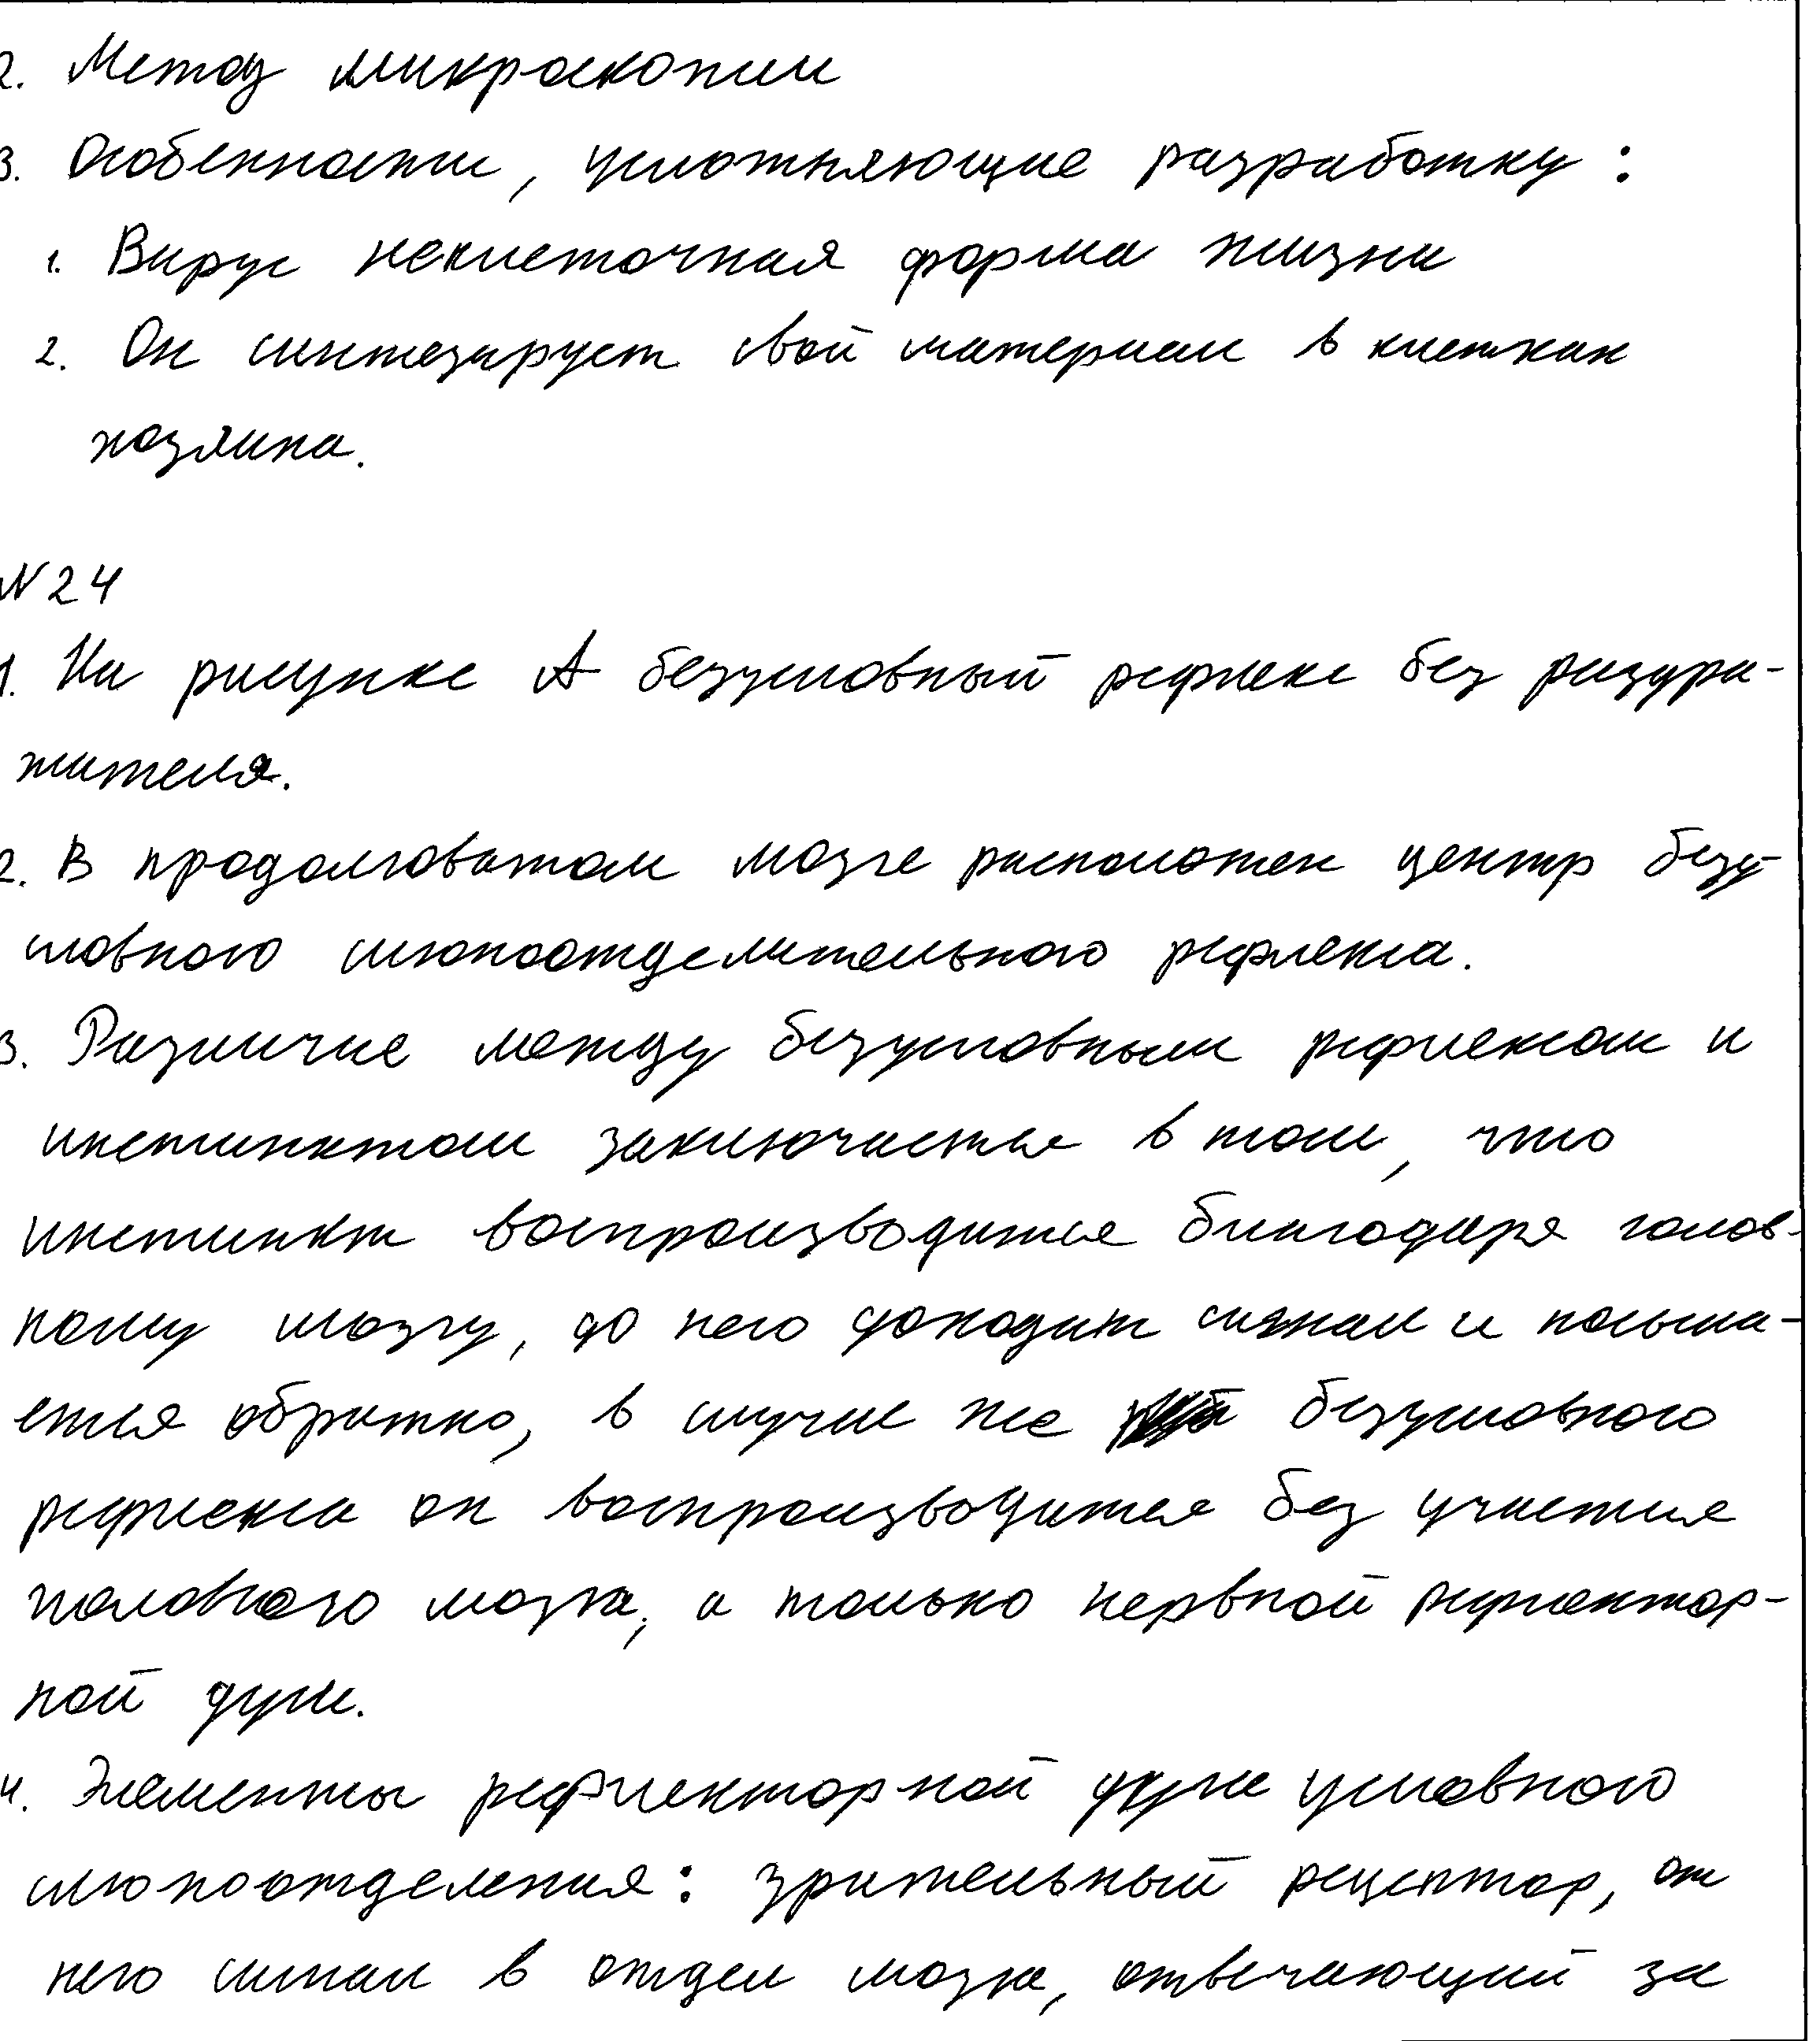 2. Метод микроскопии
3. Особенности, усложняющие разработку:
1. Вирус неклеточная форма жизни
2. Он синтезирует свой материал в клетках
хозяина.
N24
1. На рисунке А безусловный рефлекс без раздра-
жителя.
2. В продолговатом мозге расположен центр безу-
словного слюноотделительного рефлекса.
3. Различие между безусловным рефлексом и
инстинктом заключается в том, что
инстинкт воспроизводится благодаря голов-
ному мозгу, до него доходит сигнал и посыла-
ется обратно, в случае же безусловного
рефлекса он воспроизводится без участия
головного мозга, а только нервной рефлектор-
ной дуги.
4. Элементы рефлекторной дуги условного
слюноотделения: зрительный рецептор, от
него сигнал в отдел мозга, отвечающий за